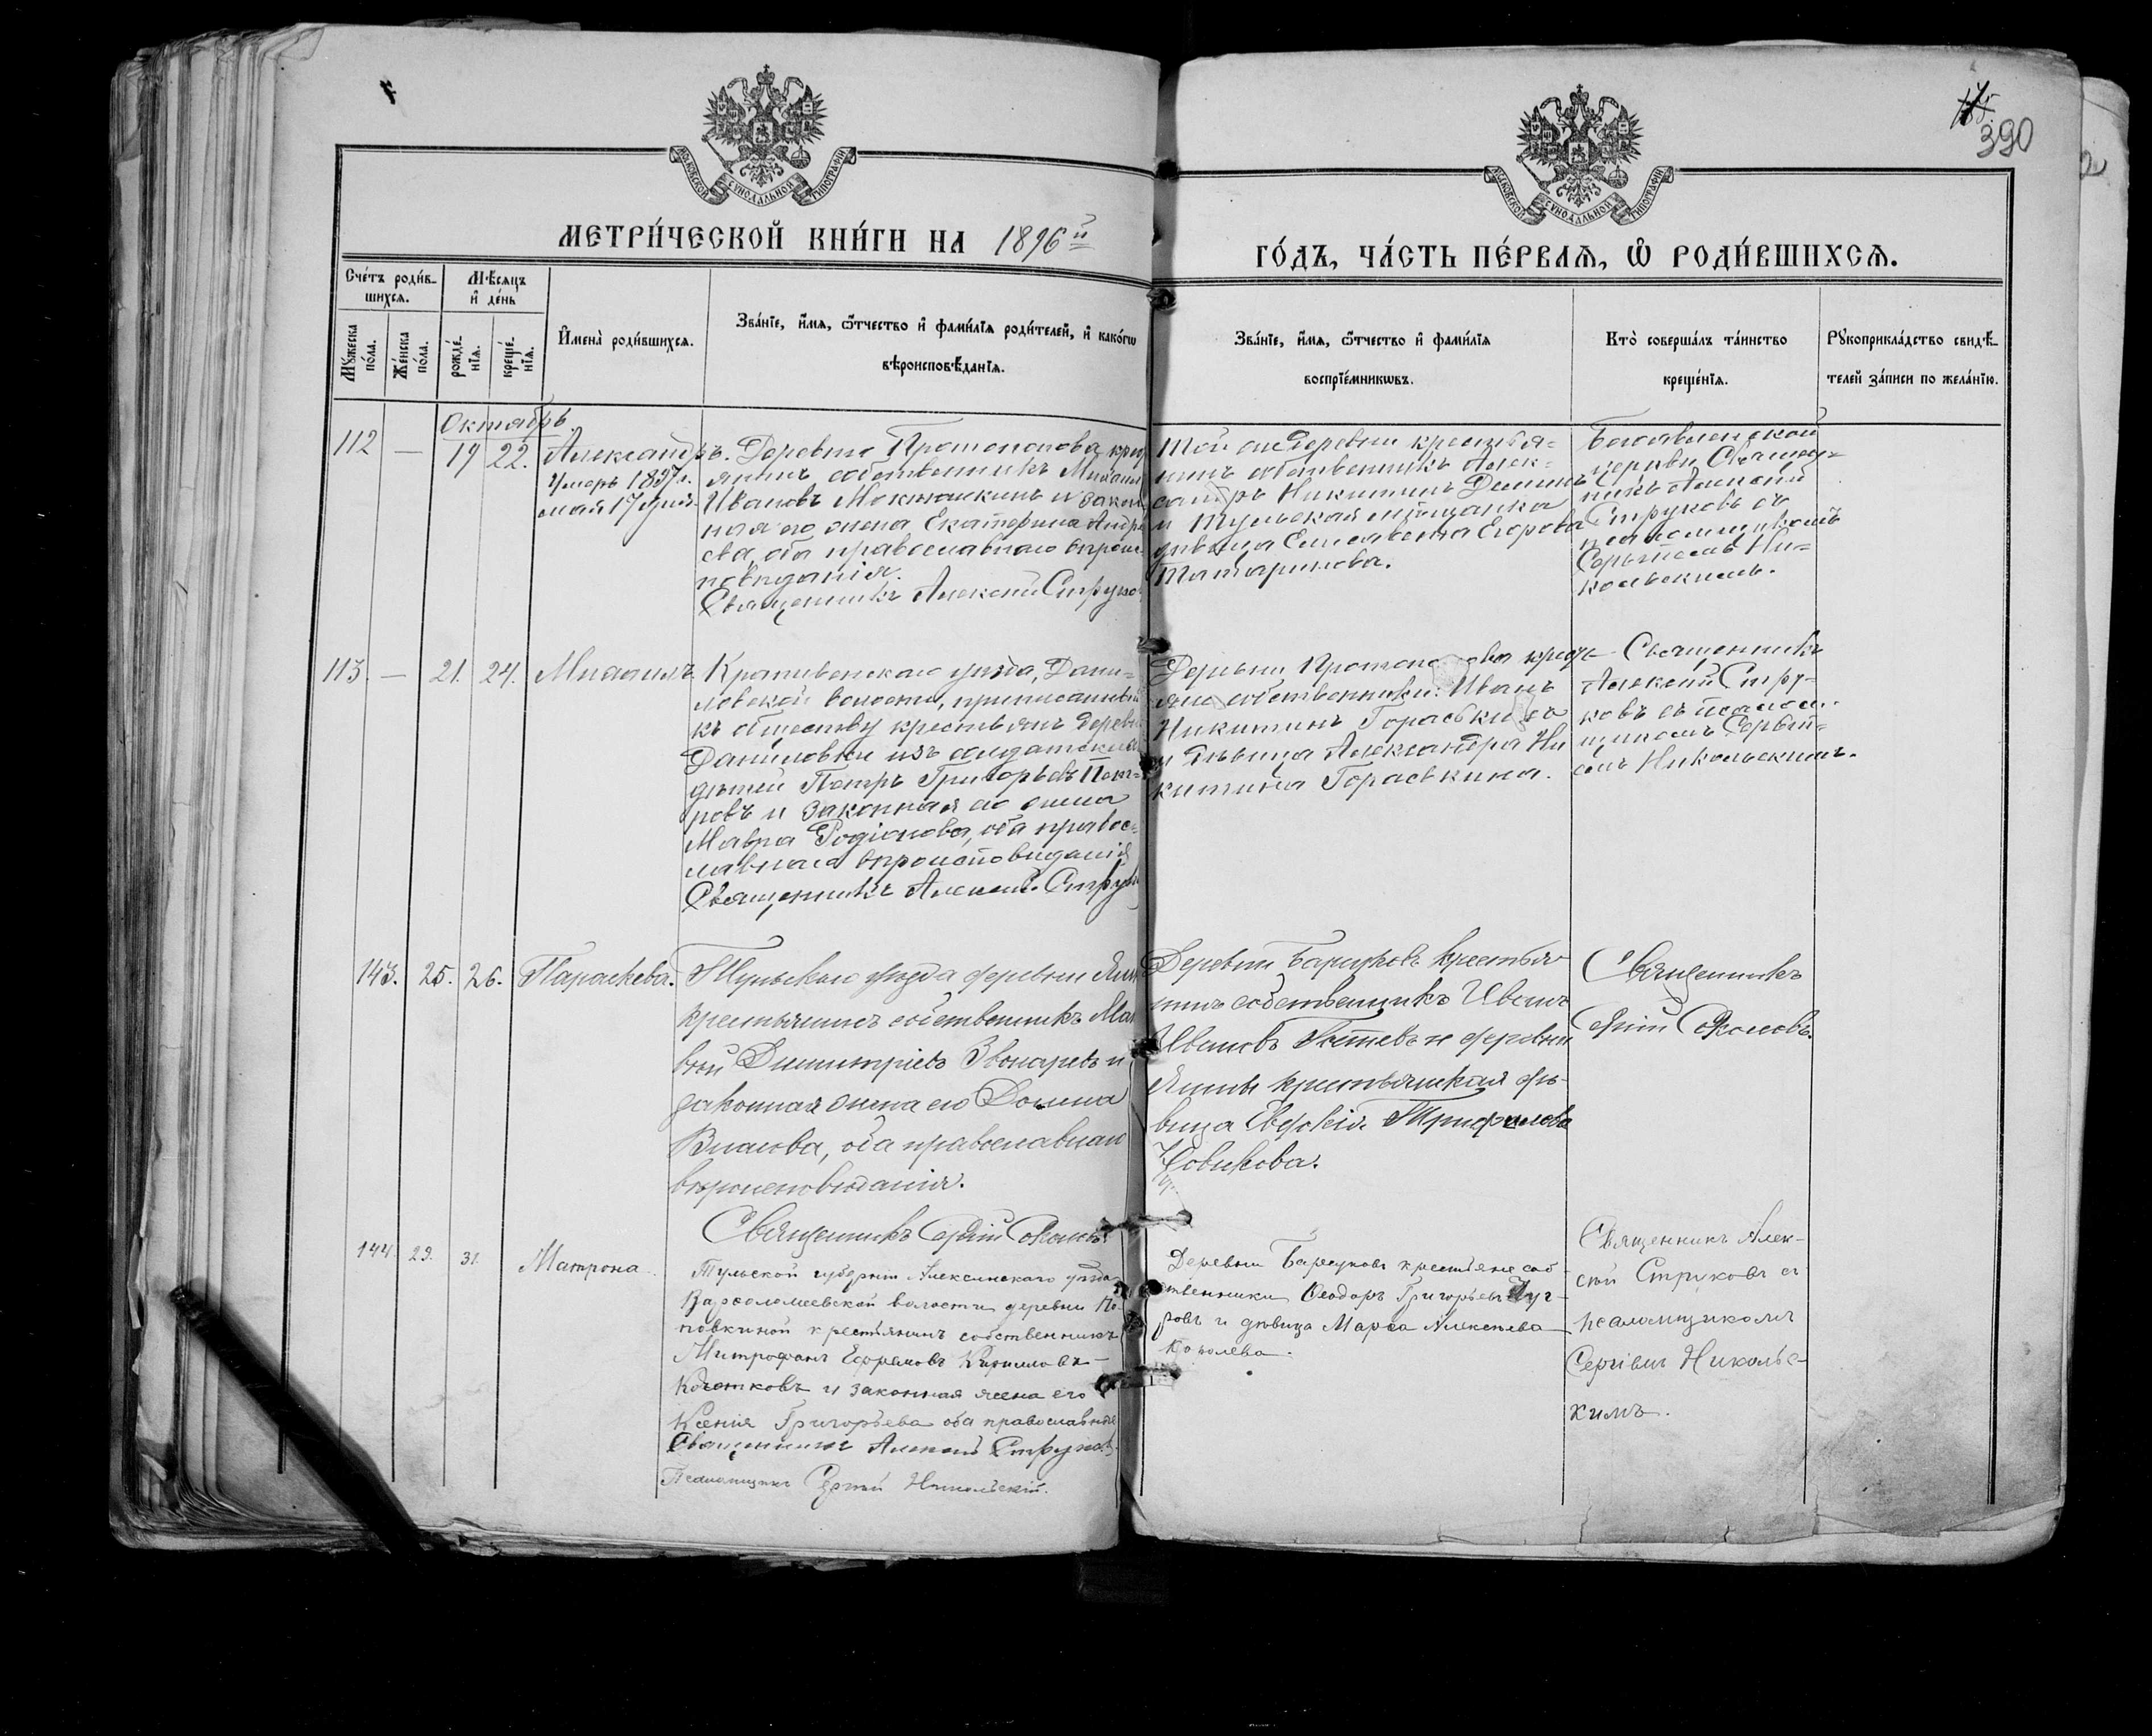 390
МОСКОВСКОЙ СѴНОДАЛЬНОЙ ТИПОГРАФІИ
МОСКОВСКОЙ СѴНОДАЛЬНОЙ ТИПОГРАФІИ
МЕТРИ́ЧЕСКОЙ КНИ́ГИ НА 1896й
ГО́ДЪ, ЧА́СТЬ ПЕ́РВАѦ, Ѡ РОДИ́ВШИХСѦ.
Сче́тъ роди́в-
шихсѧ.
Мѣ́сѧцъ
и҆ де́нь
Мꙋ́жеска
по́ла.
Же́нска
по́ла.
рожде́-
нїѧ.
креще́-
нїѧ.
И҆мена̀ роди́вшихсѧ.
Зва́нїе, и҆́мѧ, ѻ҆́тчество и҆ фами́лїѧ роди́телей, и҆ како́гѡ
вѣроисповѣ́данїѧ.
Зва́нїе, и҆́мѧ, ѻ҆́тчество и҆ фами́лїѧ
воспрїе́мникѡвъ.
Кто̀ соверша́лъ та́инство
креще́нїѧ.
Рꙋкоприкла́дство свидѣ́-
телей за́писи по жела́нїю.
Октябрь.
112 — 19 22. Александръ.
Умеръ 1897 г.
мая 17 дня
Деревни Протопопова крес
янинъ собственникъ Михаилъ
Ивановъ и закон
ная его жена Екатерина Андре
ева, оба православнаго вѣроис
повѣданія.
Священникъ Алексѣй Струко
Той же деревни крестья=
нинъ собственникъ Алек=
сандръ Никитинъ
и Тульская мѣщанка
дѣвица Елисавета Егорова
Татаринова.
Богоявленской
церкви Священ=
никъ Алексѣй
Струковъ съ
псаломщикомъ
Сергѣемъ Ни=
кольскимъ.
113. — 21. 24. Михаилъ
Крапивенскаго уѣзда, Дани=
ловской волости, приписанный
къ обществу крестьянъ дерев
Даниловки изъ солдатских
дѣтей Петръ Григорьевъ Пет=
ровъ и законная его жена
Мавра Родіонова, оба правос=
лавнаго вѣроисповѣданія
Священникъ Алексѣй Струк
Деревни Протопопова крест
яне собственники: Иванъ
Никитинъ Гораськинъ
и дѣвица Александра Ни
китина Гораськина.
Священникъ
Алексѣй Стру-
ковъ съ псалом-
щикомъ Сергѣ=
емъ Никольскимъ.
143. 25. 26. Параскева.
Тульскаго уѣзда деревни
крестьянинъ собственникъ Мат
вѣй Димитріевъ Звонаревъ и
законная жена его Домна
Власова, оба православнаго
вѣроисповѣданія.
Священникъ Сергій Соколовъ
Деревни Барсуковъ крестья
нинъ собственникъ Иванъ
Ивановъ и деревни
крестьянская дѣ-
вица Трифонова
Новикова.
Священникъ
Сергій Соколовъ.
144. 29. 31. Матрона.
Тульской губерніи Алексинскаго уѣзда
Варфоломеевской волости деревни По-
повкиной крестьянинъ собственникъ
Митрофанъ Ефремовъ Кирилловъ-
и законная жена его
Ксенія Григорьева оба православные
Священникъ Алексѣй Струковъ
Псаломщикъ Сергій Никольскій.
Деревни Барсуковъ крестьяне соб
ственники Ѳеодоръ Григорьевъ
и дѣвица Марѳа Алексѣева
Королева.
Священникъ Алек-
сѣй Струковъ съ
псаломщикомъ
Сергіемъ Никольс-
кимъ.